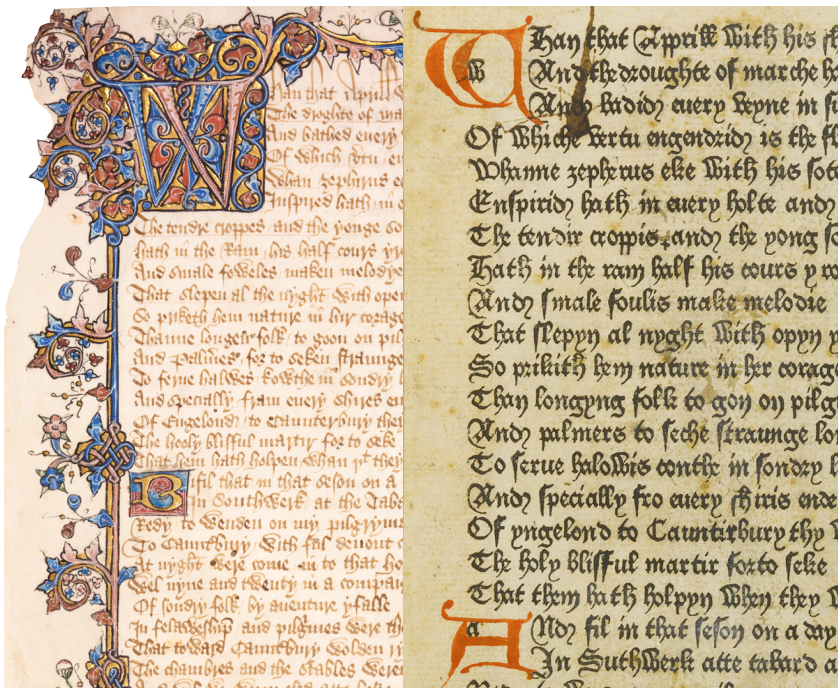 Whan that Aprill
The droghte of Ma
And bathed every
Of which vtu en
Whan zephirus e
Inspired hath in
The tendre croppes and the yonge so
Hath in the Ram his half cours yr
And smale foweles maken melodye
That slepen al the nyght with open
So priketh hem nature in hir corage
Thanne longen folk to goon on pil
And Palmeres for to seken straunge
To ferne halwes kowthe in sondry l
And specially fram every shires en
Of Engelond to Caunterbury they
The hooly blisful martir for to seke
That hem hath holpen whan yt they
Bifil that in that seson on a
In Southwerk at the Taba
Redy to wenden on my pilgryma
To Caunterbury with ful deuout
At nyght were come in to that ho
Wel nyne and twenty in a compai
Of sondry folk by auenture yfalle
In felaweshipe and pilgrimes were th
That toward Caunterbury wolden ry
The chambres and the stables were
WHan that Apprill with his sh
w And the droughte of marche h
And badid euery veyne in s
Of whiche vertu engendrid is the f
Whanne zepherus eke with his sote
Enspirid hath in euery holte and
The tendir croppis and the yong s
Hath in the ram half his cours y ro
And smale foulis make melodie
That slepyn al nyght with opyn y
So prikith hem nature in her corage
Than longyng folk to gon on pilg
And palmers to seche straunge lo
To serue halowis couthe in sondry l
And specially fro euery shiris ende
Of yngelond to Cauntirbury thy w
The holy blisful martir forto seke
That them hath holpyn when they w
a ANd fil in that seson on a day
In Suthwerk atte tabard a